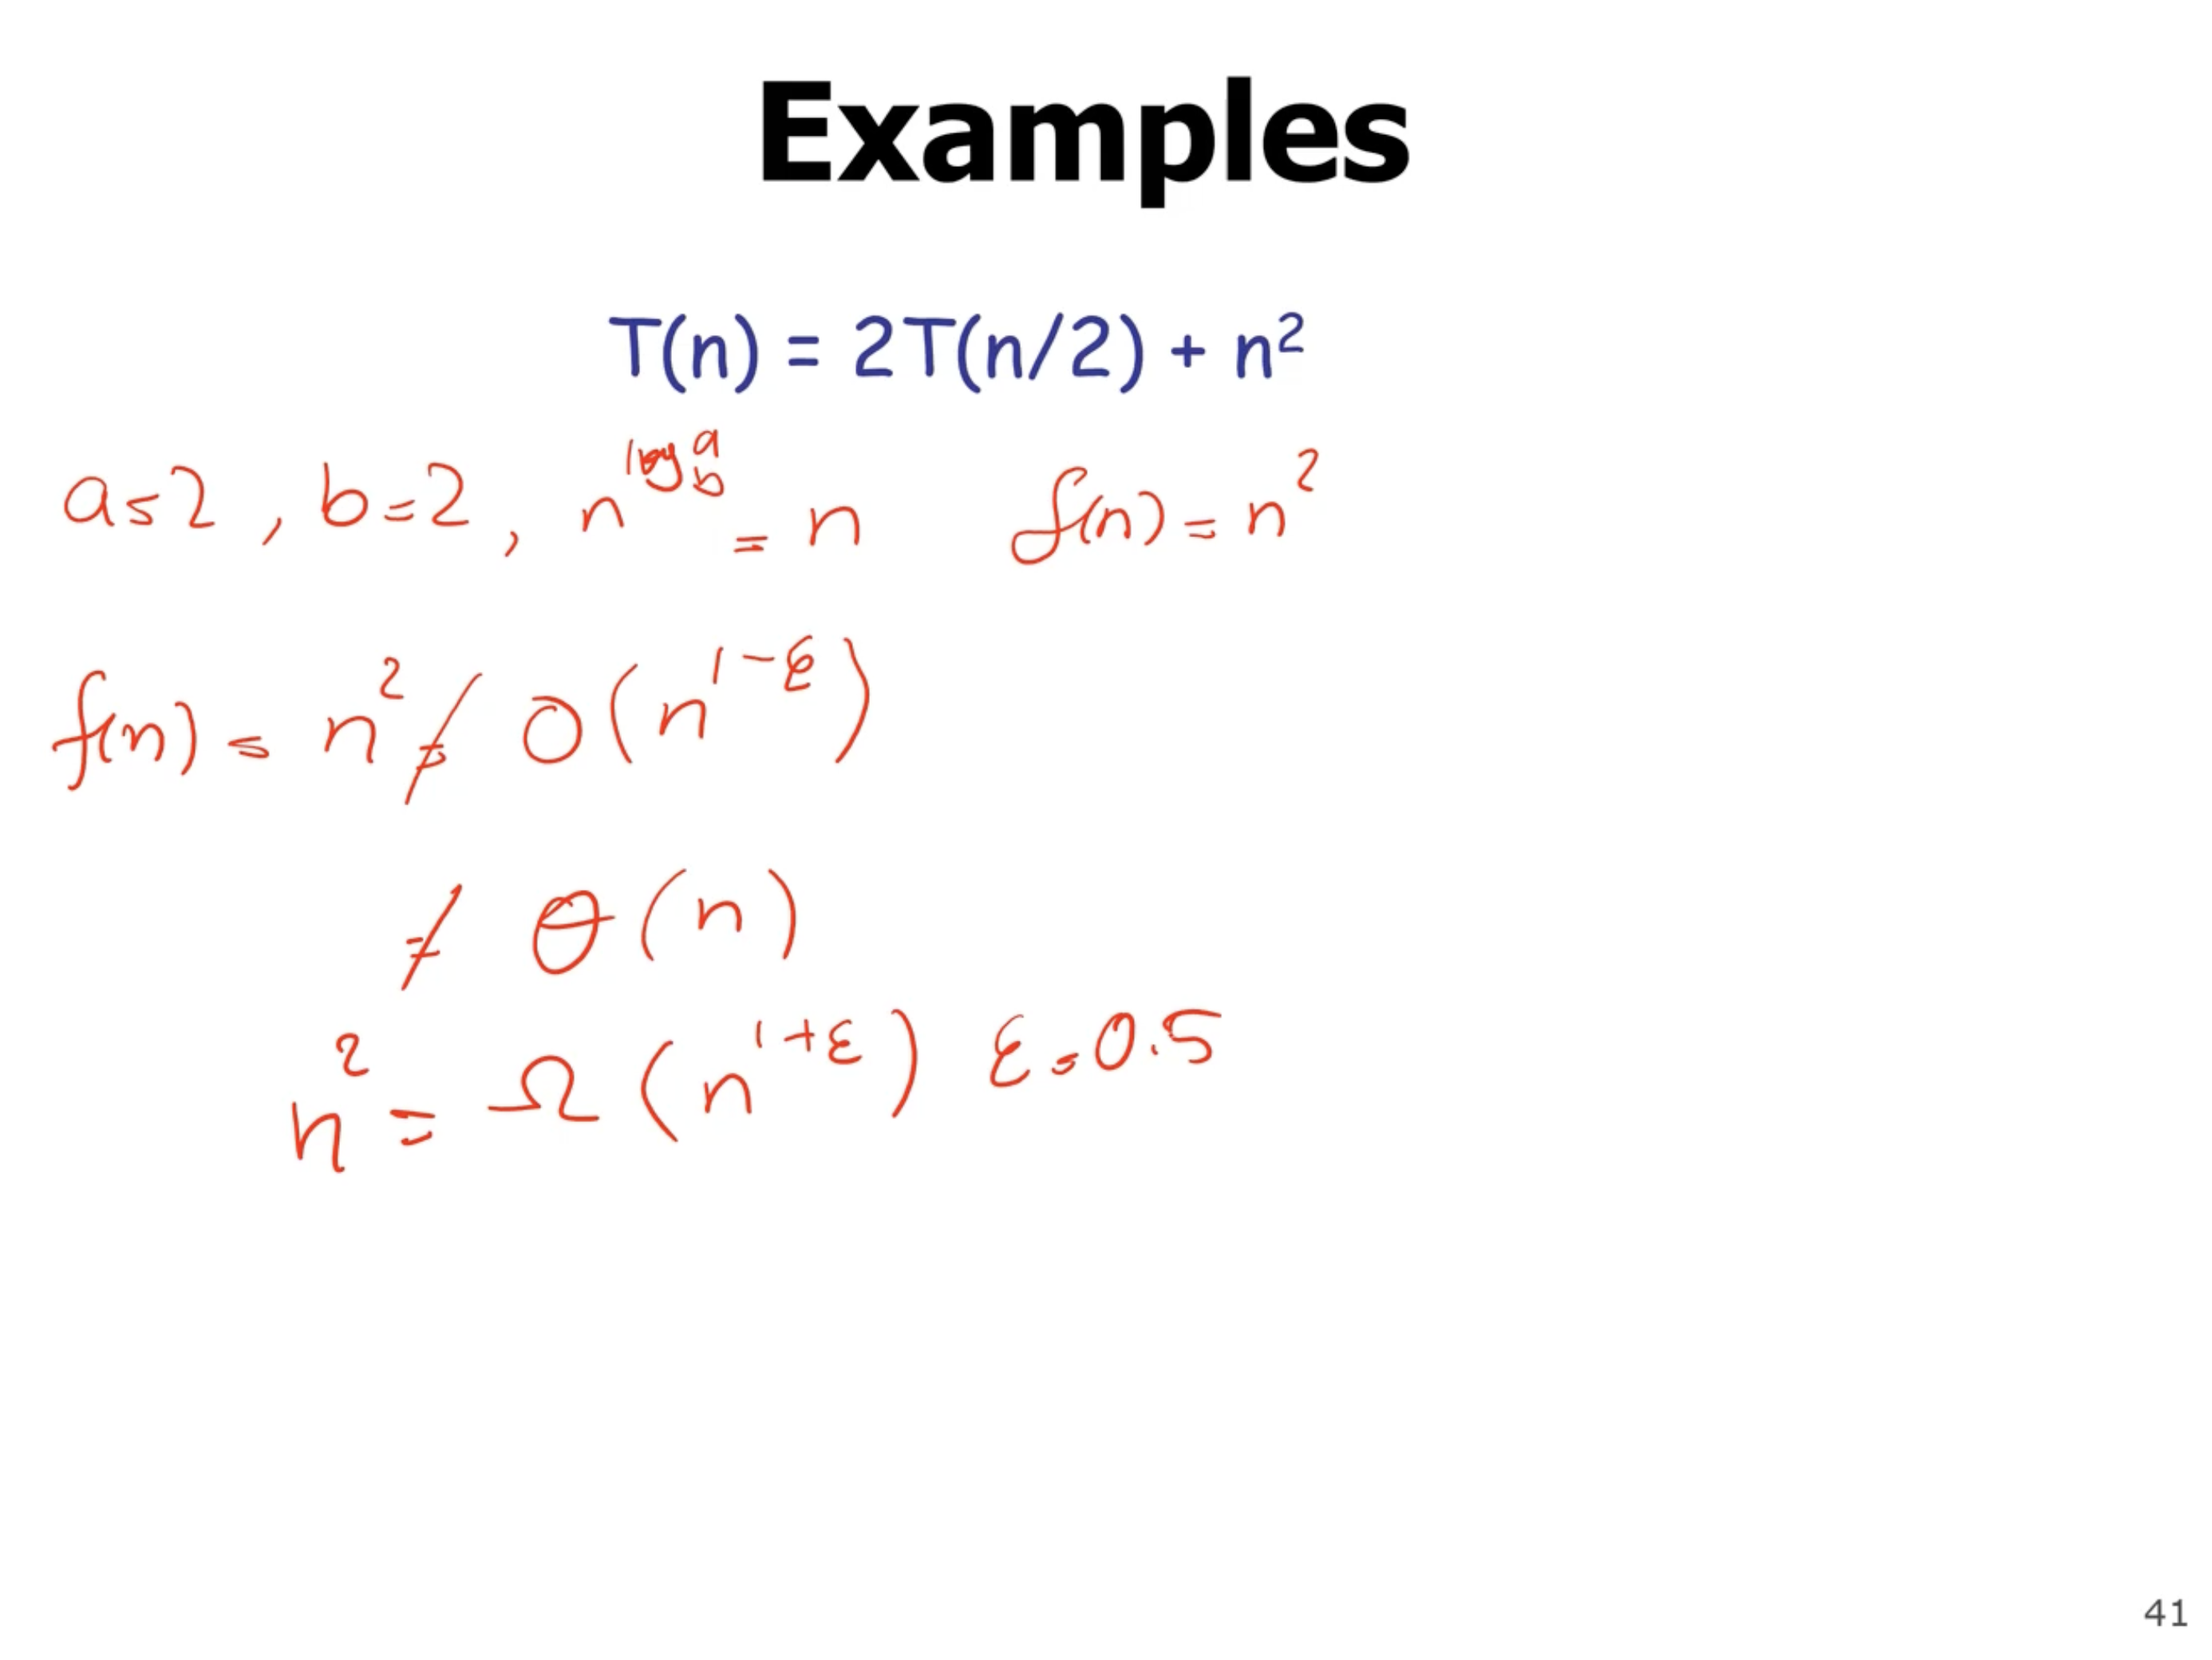 Examples
T(n) = 2T(n/2) + n²
a=2 , b=2 , n^(log_b a) = n f(n) = n²
f(n) = n² ≠ O(n^(1-ε))
≠ Θ(n)
n² = Ω(n^(1+ε)) ε=0.5
41